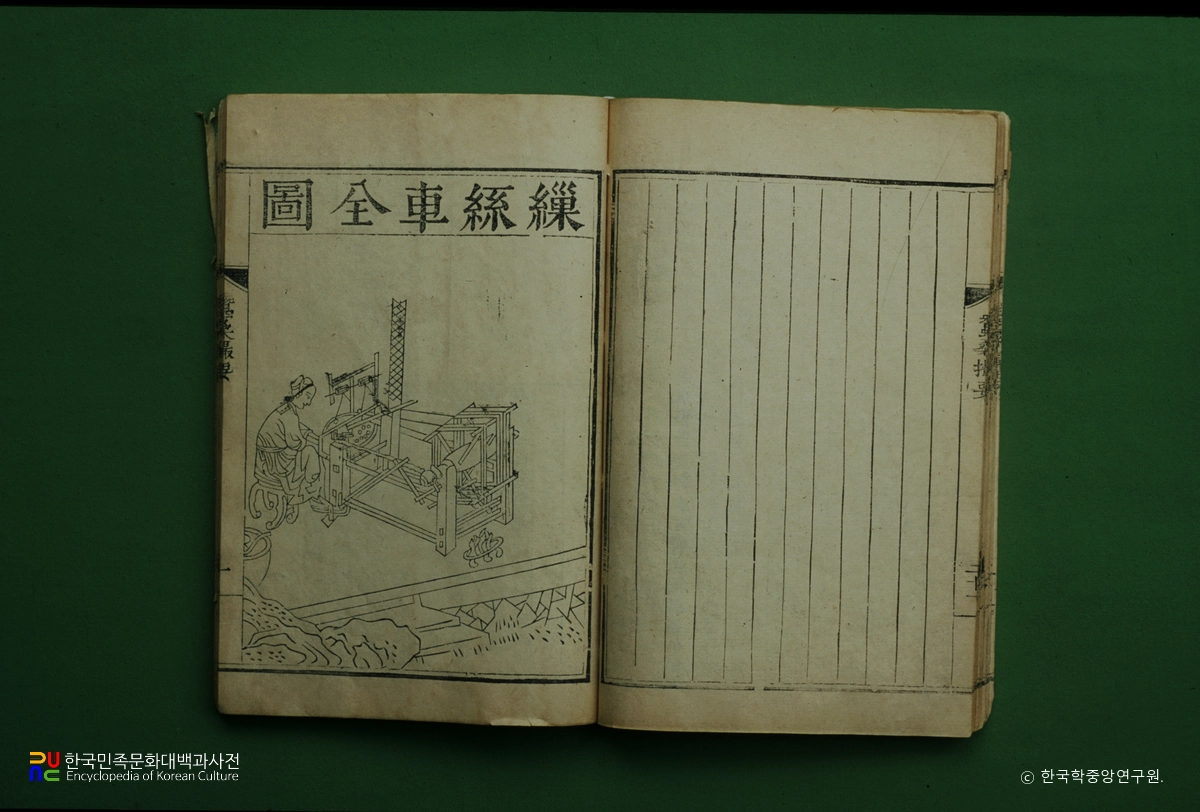 繅絲車全圖
蠶桑撮要
蠶桑撮要
한국민족문화대백과사전
Encyclopedia of Korean Culture
ⓒ 한국학중앙연구원.